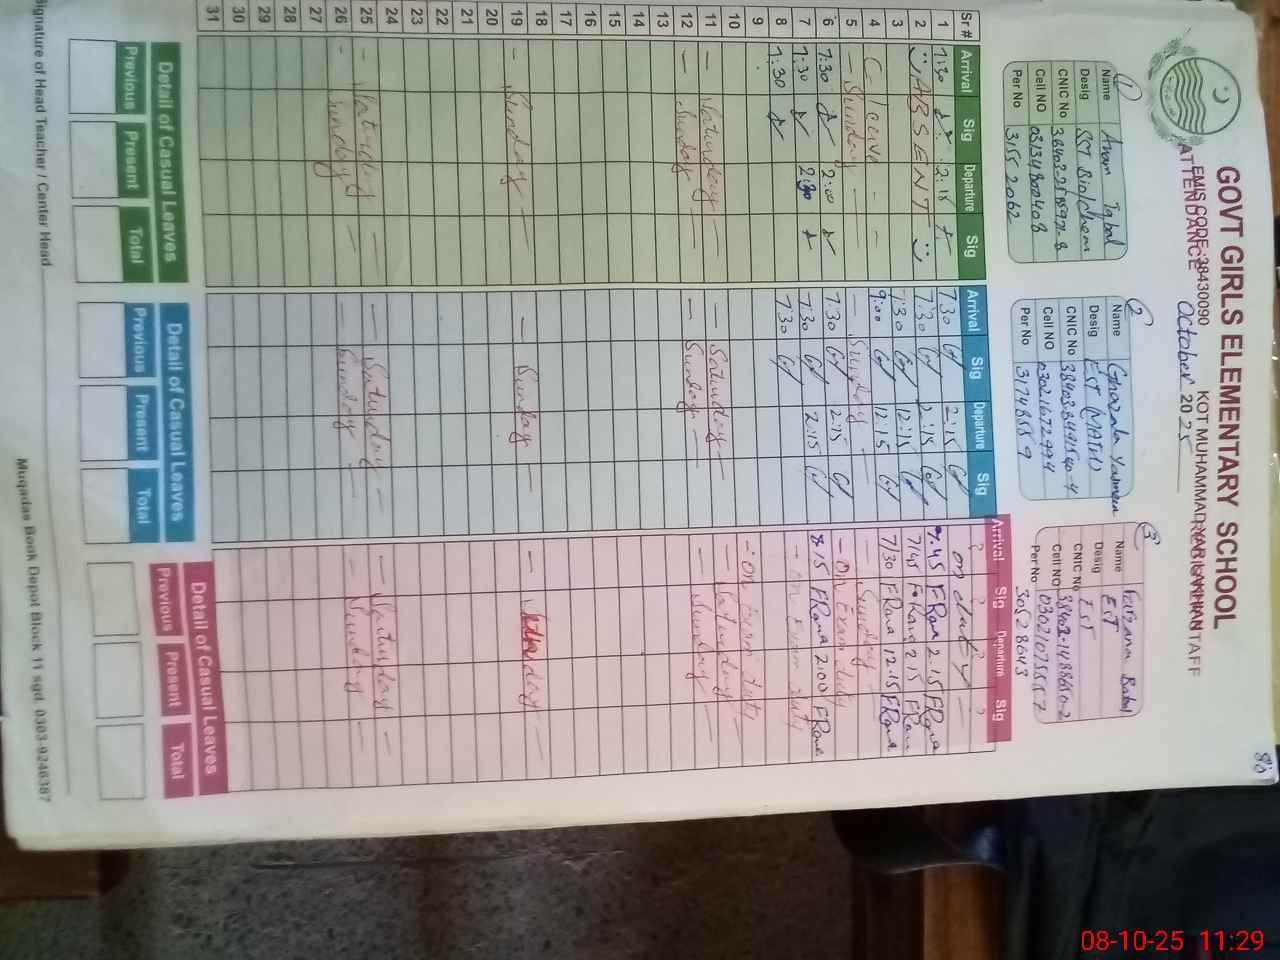 80
GOVT GIRLS ELEMENTARY SCHOOL
EMIS CODE: 38430090
ATTENDANCE
October 2025
1
Name Anam Iqbal
Desig SST Bio/chem
CNIC No
Cell NO 03134800408
Per No 31522062
2
Name Ghazala Yasmeen
Desig EST (MATH)
CNIC No
Cell NO
Per No 31748559
3
Name Farzana Batool
EST
Desig EST
CNIC No
Cell NO
Per No 30528643
Sr# Arrival Sig Departure Sig Arrival Sig Departure Sig Arrival Sig Departure Sig
1 7:30 2:15 7:30 2:15 on duty
2 ABSENT 7:30 2:15 7.45 FRana 2.15 FRana
3 7:30 12:15 7/45 FRana 2.15 FRana
4 C-leave 9:00 12:15 7/30 FRana 12.15 FRana
5 — Sunday — Sunday — — Sunday —
6 7:30 2:00 7:30 2:15 - on Exam duty
7 7:30 2:30 7:30 2:15 8.15 FRana 2:00 FRana
8 7:30 7:30 - on Exam duty
9
10 - on Exam duty
11 — Saturday — — Saturday — — Saturday —
12 — Sunday — — Sunday — — Sunday —
13
14
15
16
17
18
19 — Sunday — — Sunday —
20
21
22
23
24
25 — Saturday — — Saturday — — Saturday —
26 - Sunday — — Sunday — — Sunday —
27
28
29
30
31
Detail of Casual Leaves Detail of Casual Leaves Detail of Casual Leaves
Previous Present Total Previous Present Total Previous Present Total
Signature of Head Teacher / Center Head
Muqadas Book Depot Block 11 sgd. 0303-9246387
08-10-25 11:29